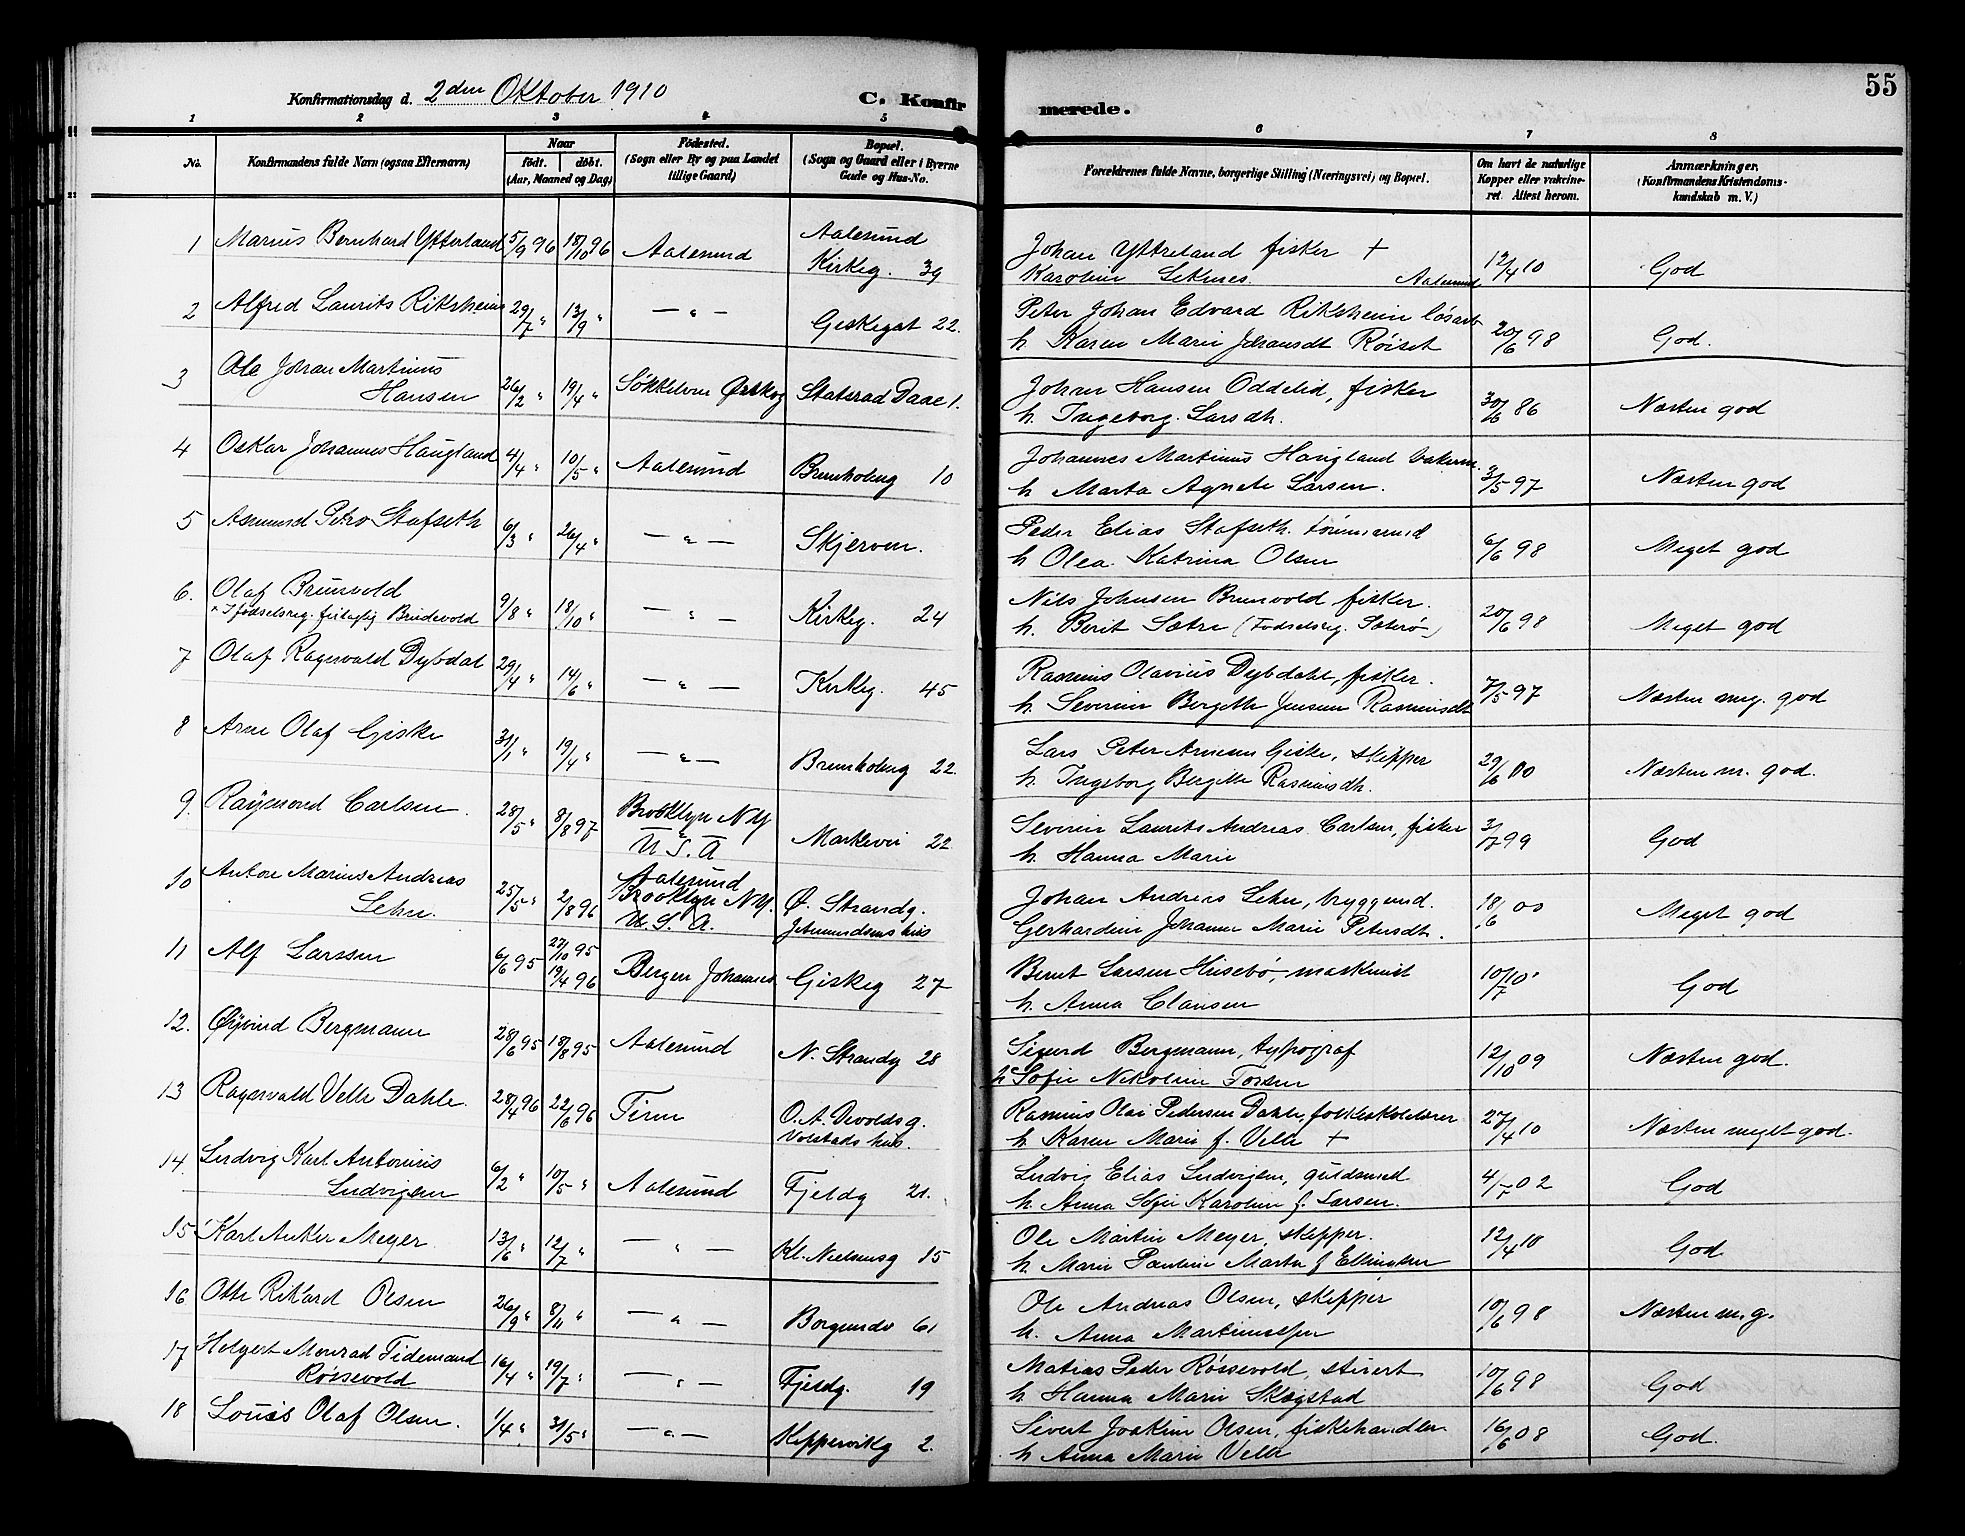 55
Konfirmationsdag d. 2den Oktober 1910
C. Konfirmerede.
1 2 3 4 5 6 7 8
No.
Konfirmandens fulde Navn (ogsaa Efternavn)
Naar
født. døbt.
(Aar, Maaned og Dag)
Fødested.
(Sogn eller By og paa Landet
tillige Gaard)
Bopæl.
(Sogn og Gaard eller i Byerne
Gade og Hus-No.
Forældrenes fulde Navne, borgerlige Stilling (Næringsvei) og Bopæl.
Om havt de naturlige
Kopper eller vakcine-
ret. Attest herom.
Anmærkninger,
(Konfirmandens Kristendoms-
kundskab m. V.)
1 Marius Bernhard Ytterland 5/9 96 18/10 96 Aalesund Aalesund
Kirkeg. 39
Johan Yttreland fisker +
Karoline Seknes. Aalesund
12/4 10 God
2 Alfred Laurits Riksheim 29/7 " 13/9 " — " — Geskegat 22.
Peter Johan Edvard Riksheim løsarb
h. Karen Marie Johansdt Røiset
20/6 98 God.
3 Ole Johan Martinus
Hansen 26/2 " 19/4 " Søkkelven Ørskog Statsrad Daae 1.
Johan Hansen Oddelid, fisker
h. Ingeborg Larsdh.
30/6 86 Næsten god
4 Oskar Johannes Haugland 4/4 " 10/5 " Aalesund Bremholmg 10
Johannes Martinus Haugland bakerm.
h. Marta Agnete Larsen.
3/5 97 Næsten god
5 Asmund Petro Stafseth 6/3 " 26/4 " — " — Skjerven.
Peder Elias Stafseth. tømmermd
h Olea Katrina Olsen
6/6 98 Meget god
6. Olaf Brunvold
9/8 " 18/10 " — " — Kirkeg. 24
Nils Johnsen Brunvold fisker.
h. Berit Sætre (Fødselsreg. Sæterø)
20/6 98 Meget god
7 Olaf Ragnvald Dybdal 29/4 " 14/6 " — " — Kirkeg. 45
Rasmus Olavius Dybdahl, fisker.
h. Severine Bergette Jensen Rasmusdt
7/5 97 Næsten meg. god
8 Arne Olaf Giske 31/1 " 19/4 " — " — Bremholmg 22.
Lars Peter Arnesen Giske, skipper
h. Ingeborg Bergitte Rasmusdh.
29/6 00 Næsten m. god.
9. Raymond Carlsen. 28/5 " 8/8 97 Brooklyn NY
U. S. A Markevei 22.
Severin Laurits Andreas Carlsen, fisker
h. Hanna Marie
3/7 99 God
10 Anton Marius Andreas
Lehn. 25/5 " 2/8 96 Aalesund
Brooklyn NY.
U. S. A. Ø. Strandg.
Johan Andreas Lehn, bryggemd.
Gerhardine Johanne Marie Petersdt.
18/6 00 Meget god
11 Alf Larssen 6/6 95 27/10 95
19/4 96 Bergen Johannes Giskeg 27
Bernt Larsen Husebø, maskinist
h. Anna Clausen
10/7 10 God
12. Øyvind Bergmann 28/6 95 18/8 95 Aalesund N. Strandg 28
Sigurd Bergmann, typograf
h. Sofie Nikoline Torsen
12/10 09 Næsten god.
13 Ragnvald Velle Dahle. 28/4 96 22/6 96 O. A. Devoldsg.
Volstads hus.
Rasmus Olai Pedersen Dahle, folkeskolelærer
h. Karen Marie f. Velle +
27/4 10 Næsten meget god.
14. Ludvig Karl Antonius
Ludvigsen 6/2 " 10/5 " Aalesund Fjeldg 21.
Ludvig Elias Ludvigsen, guldsmed
h. Anna Sofie Karoline f. Larsen.
4/5 02 God
15 Karl Anker Meyer 13/6 " 12/7 " — " — Kl. Nielsensg 15
Ole Martin Meyer, skipper.
h. Marie Pauline Marta f Ellingsen
12/4 10 God
16 Otto Rikard Olsen 26/9 " 8/11 " — " — Borgundv 61
Ole Andreas Olsen, skipper
h. Anna Martinussen
10/6 98 Næsten m. g.
17 Holgert Monrad Tidemand
Røssevold 16/4 " 19/7 " — " — Fjeldg. 19
Matias Peder Røssevold, stuert
h Hanna Marie Skogstad
10/6 98 God
18 Louis Olaf Olsen. 1/4 " 31/5 " — " — Kippervikg 2.
Sivert Joakim Olsen, fiskehandler
h Anna Marie Velle
16/6 08 God.